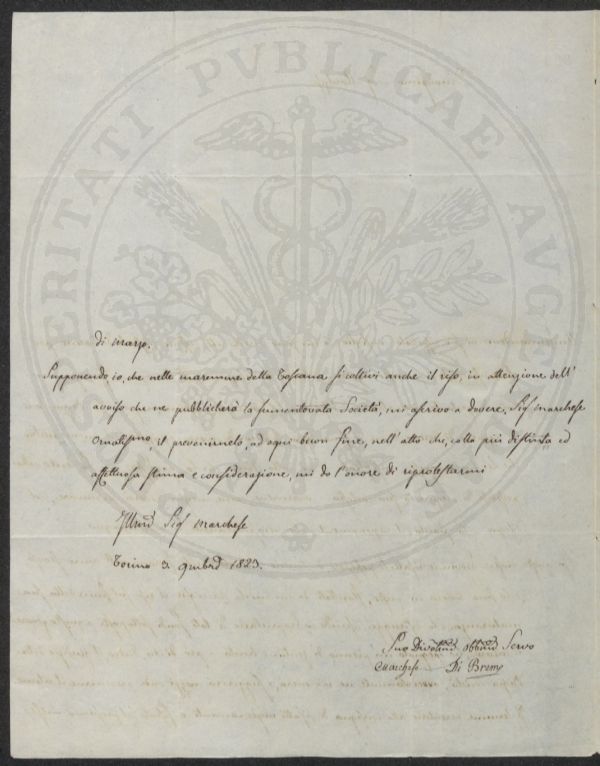 di marzo.
Supponendo io, che nelle maremme della Toscana si coltivi anche il riso, in attenzione dell'
avviso che ne pubblicherà la summentovata Società, mi ascrivo a dovere, Sigr Marchese
Ornatismo, il prevenirnelo, ad ogni buon fine, nell'atto che, colla più distinta, ed
affettuosa stima e considerazione, mi do l'onore di riprotestarmi
Illmo Sigr Marchese
Torino 3. 9mbre 1823.
Suo Divotmo obbmo Servo
Marchese Di Breme
VERITATI PVBLICAE AVGE